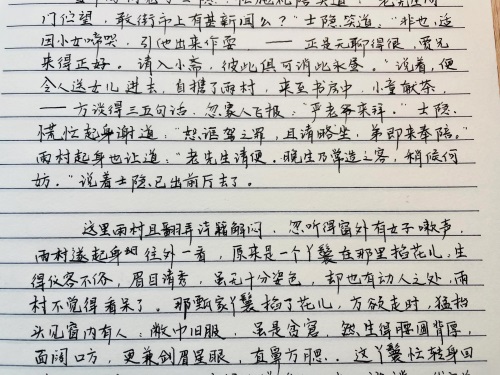 士隐，忙施礼陪笑道："老先生倚
门伫望，敢街市上有甚新闻么？"士隐笑道："非也，适
因小女啼哭，引他出来作耍——正是无聊得很，贾兄
来得正好。请入小斋，彼此俱可消此永昼。"说着，便
令人送女儿进去，自携了雨村，来至书房中，小童献茶，
——方谈得三五句话，忽家人飞报："严老爷来拜。"士隐
慌忙起身谢道："恕诓驾之罪，且请略坐，弟即来奉陪。"
雨村起身也让道："老先生请便。晚生乃常造之客，稍候何
妨。"说着士隐已出前厅去了。
这里雨村且翻弄诗籍解闷，忽听得窗外有女子嗽声，
雨村遂起身往外一看，原来是一个丫鬟在那里掐花儿，生
得仪容不俗，眉目清秀，虽无十分姿色，却也有动人之处。雨
村不觉得看呆了。那甄家丫鬟掐了花儿，方欲走时，猛抬
头见窗内有人：敝巾旧服，虽是贫窘，然生得腰圆背厚，
面阔口方，更兼剑眉星眼，直鼻方腮..这丫鬟忙转身回